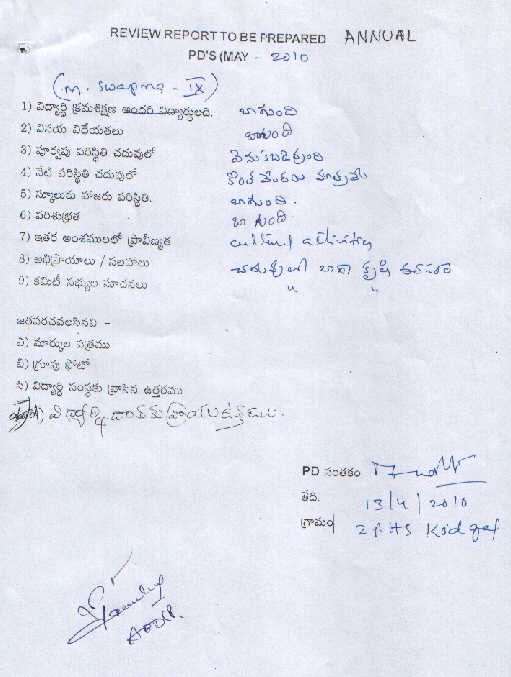 REVIEW REPORT TO BE PREPARED ANNUAL
PD'S (MAY - 2010
(M. Swapna - IX)
1) విద్యార్థి క్రమశిక్షణ అందరి విద్యార్థులది. బాగుంది
2) వినయ విధేయతలు బాగుంది
3) పూర్వపు పరిస్థితి చదువులో వెనుకబడివుంది
4) నేటి పరిస్థితి చదువులో కొంత మెరుగు మాత్రమే
5) స్కూలుకు హాజరు పరిస్థితి. బాగుంది.
6) పరిశుభ్రత బాగుంది
7) ఇతర అంశములలో ప్రావీణ్యత cultural activities
8) అభిప్రాయాలు / సలహాలు చదువులో బాగా కృషి
9) కమిటీ సభ్యుల సూచనలు
జతపరచవలసినవి -
ఎ) మార్కుల పత్రము
బి) గ్రూపు ఫోటో
సి) విద్యార్థి సంస్థకు వ్రాసిన ఉత్తరము
విద్యార్థి
PD సంతకం
తేది. 13/4/2010
గ్రామం ZPHS